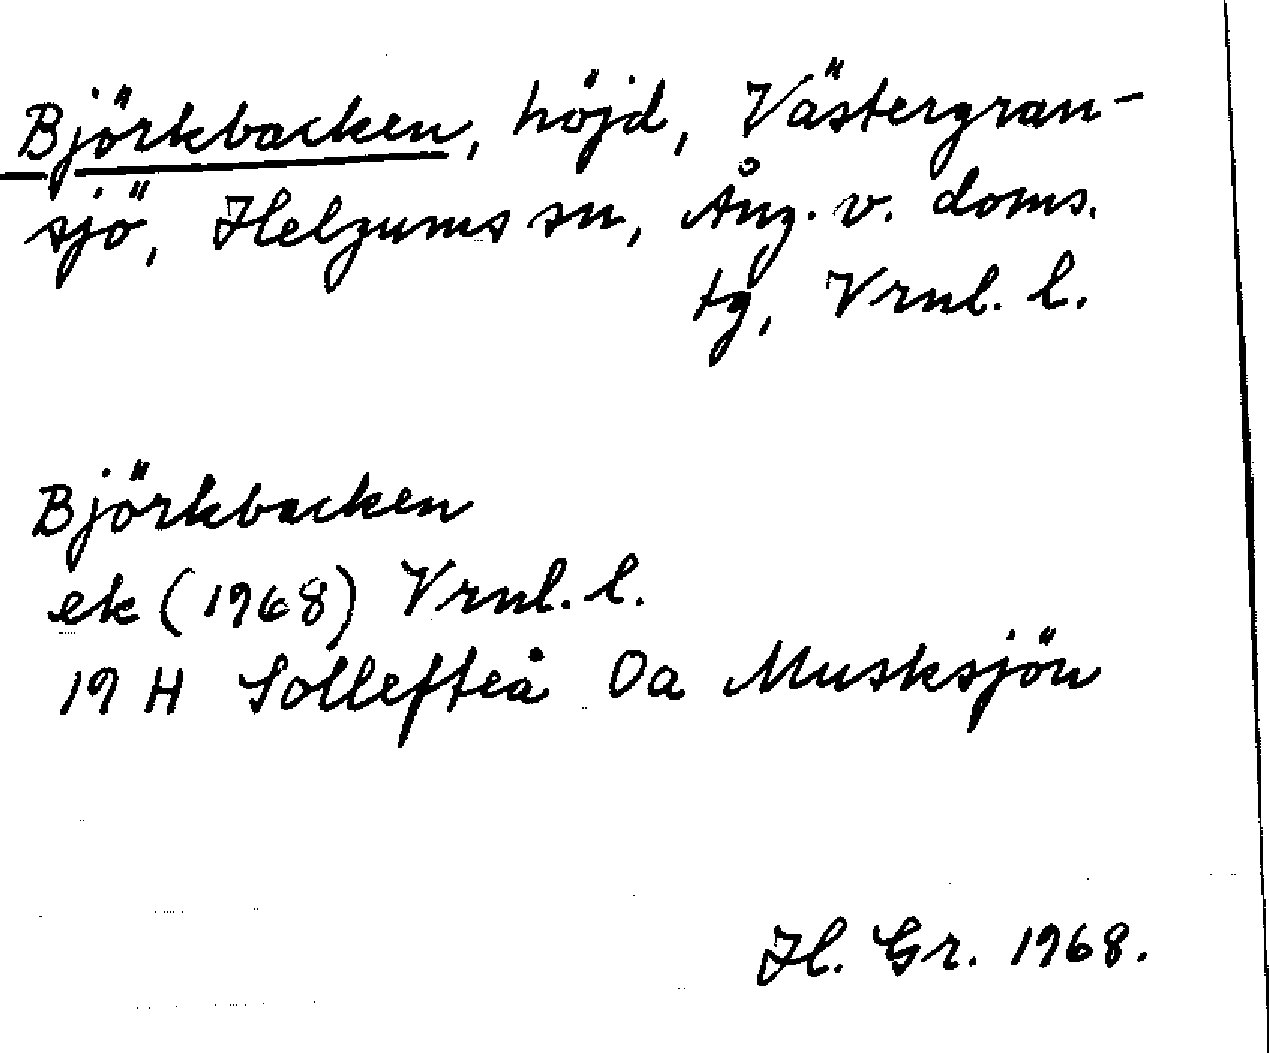 Björkbacken, höjd, Västergran-
sjö, Helgums sn, Ång. v. doms.
tg, Vrnl. l.
Björkbacken
ek (1968) Vrnl. l.
19 H Sollefteå 0a Musksjön
H. Gr. 1968.